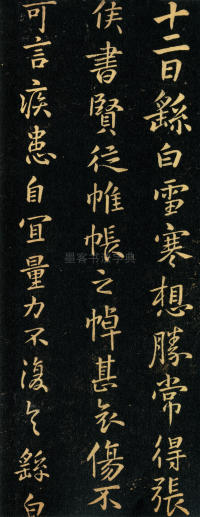 十二日繇白雪寒想勝常得張
侯書賢從帷帳之悼甚哀傷不
可言疾患自宜量力不復之繇白
墨客书法字典